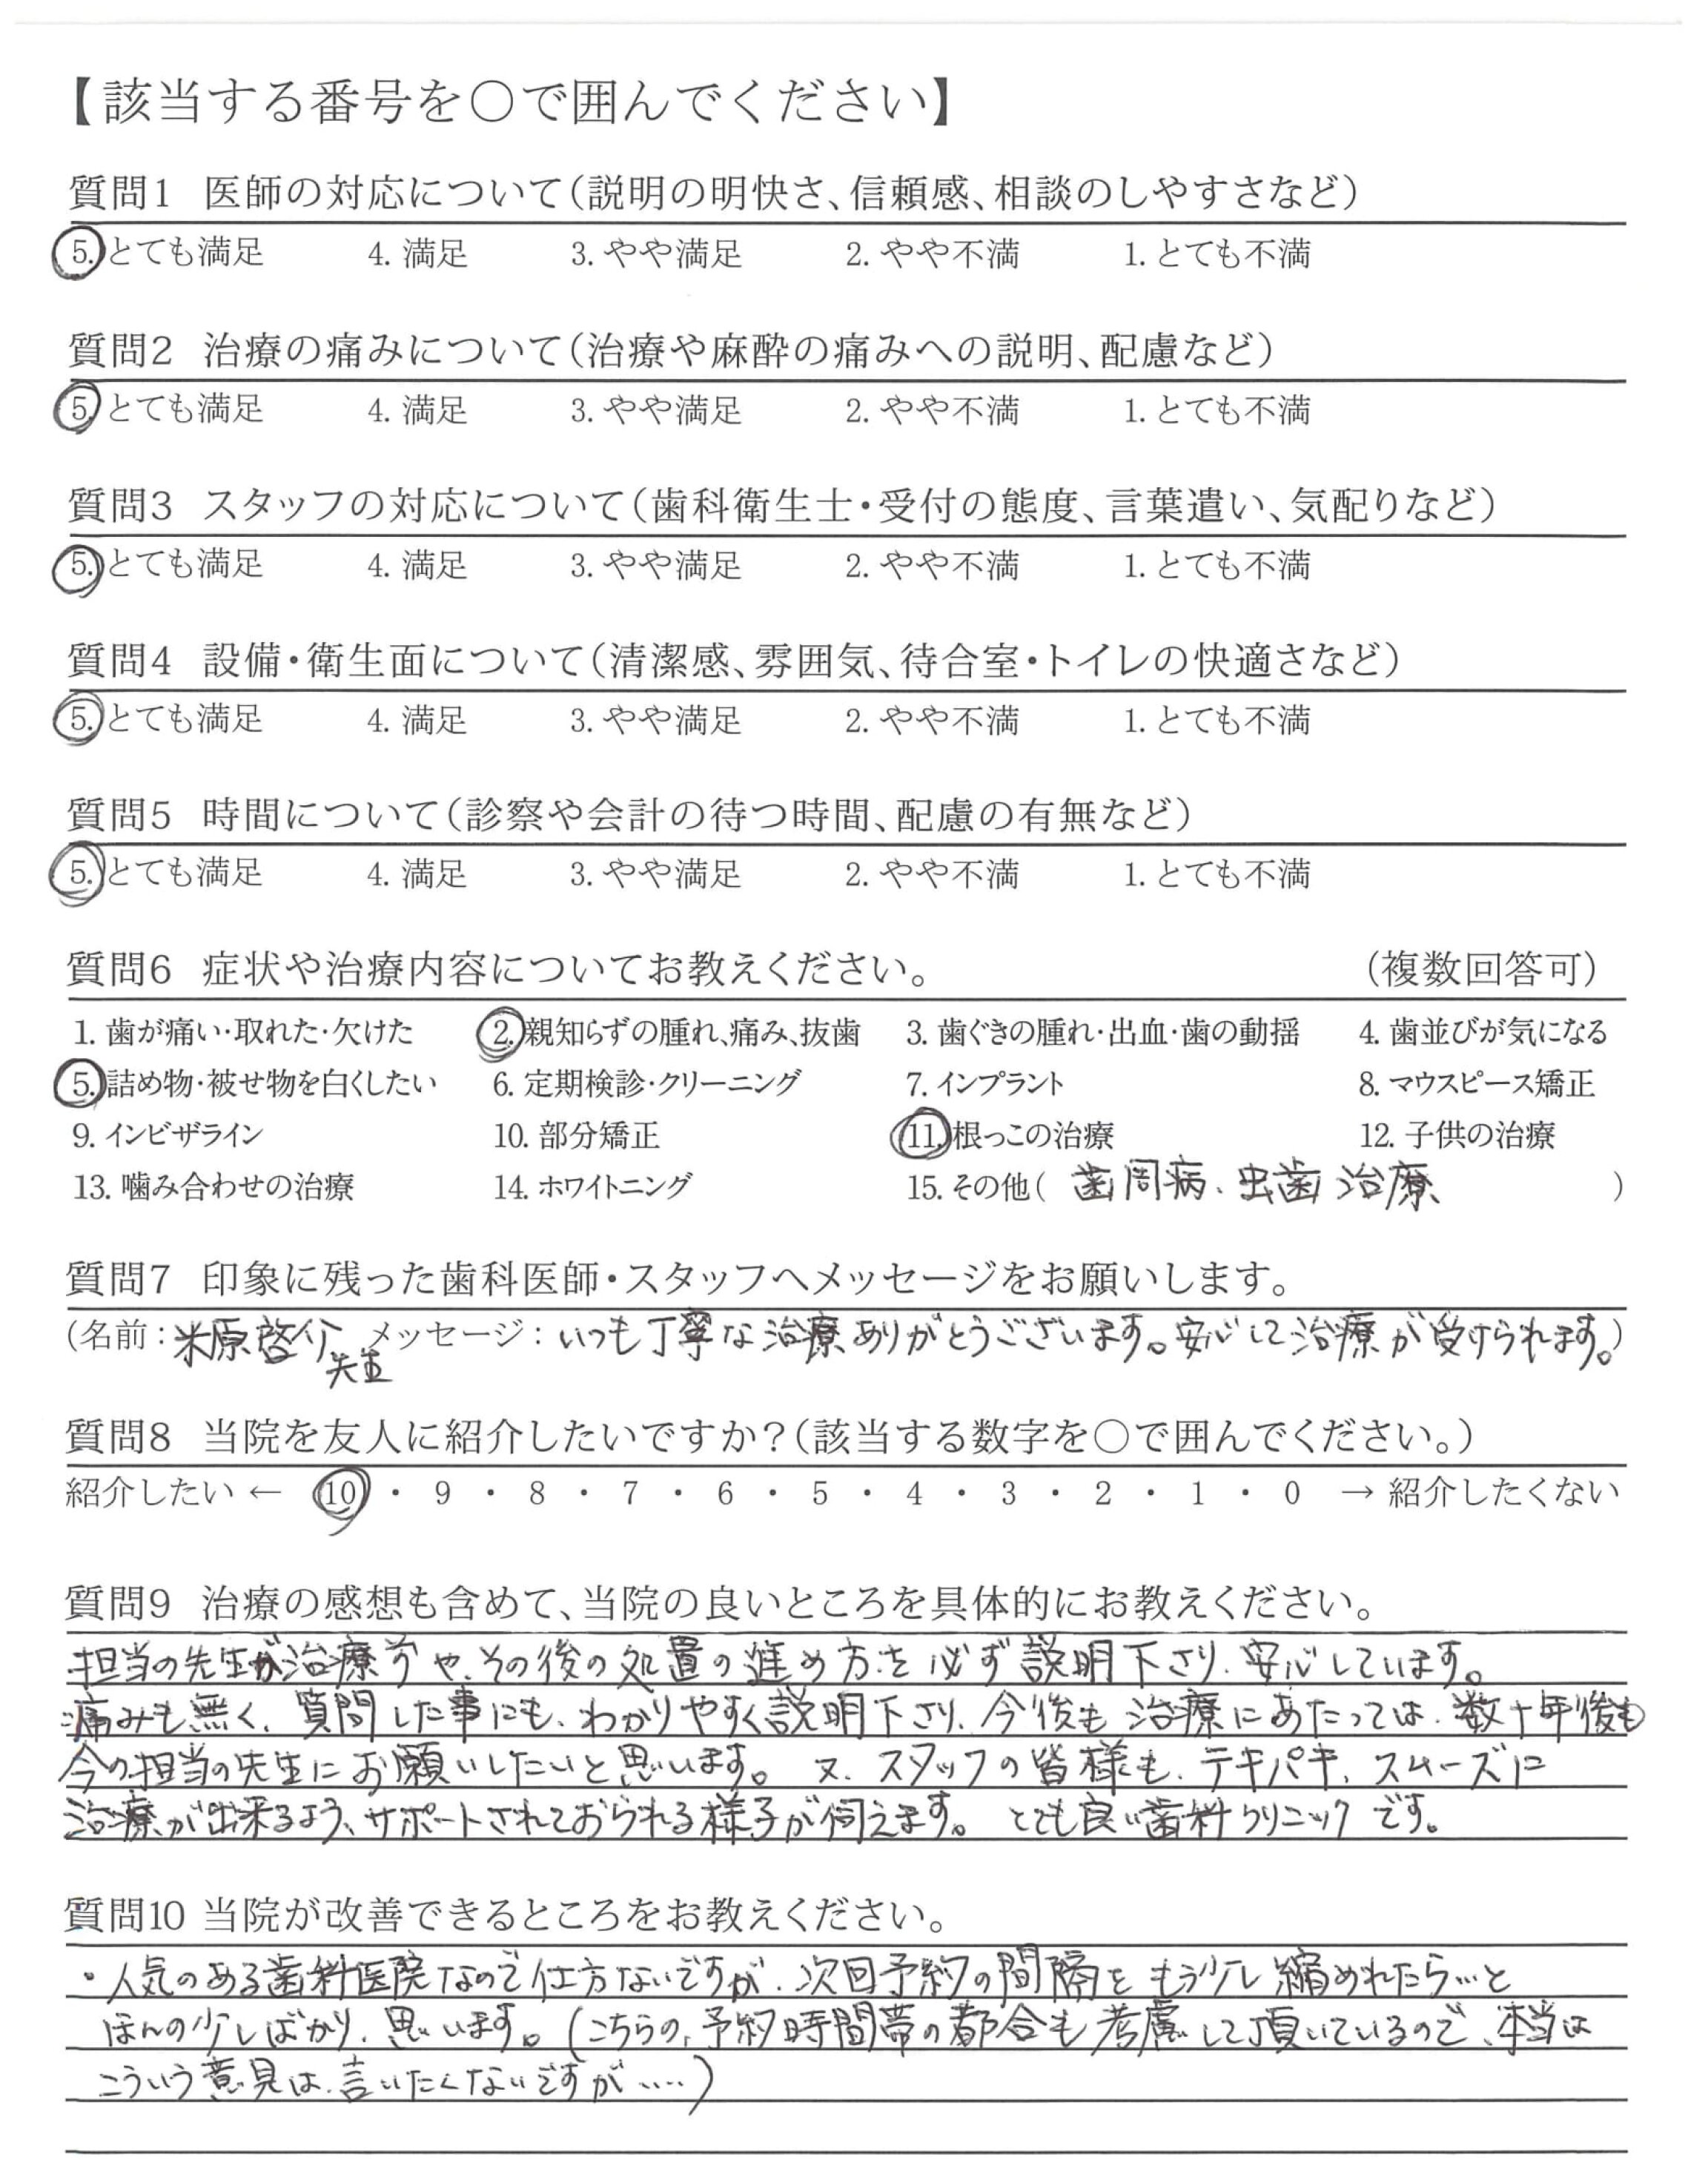 【該当する番号を〇で囲んでください】
質問1 医師の対応について(説明の明快さ、信頼感、相談のしやすさなど)
5. とても満足 4. 満足 3. やや満足 2. やや不満 1. とても不満
質問2 治療の痛みについて(治療や麻酔の痛みへの説明、配慮など)
5. とても満足 4. 満足 3. やや満足 2. やや不満 1. とても不満
質問3 スタッフの対応について(歯科衛生士・受付の態度、言葉遣い、気配りなど)
5. とても満足 4. 満足 3. やや満足 2. やや不満 1. とても不満
質問4 設備・衛生面について(清潔感、雰囲気、待合室・トイレの快適さなど)
5. とても満足 4. 満足 3. やや満足 2. やや不満 1. とても不満
質問5 時間について(診察や会計の待つ時間、配慮の有無など)
5. とても満足 4. 満足 3. やや満足 2. やや不満 1. とても不満
質問6 症状や治療内容についてお教えください。 (複数回答可)
1. 歯が痛い・取れた・欠けた 2. 親知らずの腫れ、痛み、抜歯 3. 歯ぐきの腫れ・出血・歯の動揺 4. 歯並びが気になる
5. 詰め物・被せ物を白くしたい 6. 定期検診・クリーニング 7. インプラント 8. マウスピース矯正
9. インビザライン 10. 部分矯正 11. 根っこの治療 12. 子供の治療
13. 噛み合わせの治療 14. ホワイトニング 15. その他( 歯周病、虫歯治療 )
質問7 印象に残った歯科医師・スタッフへメッセージをお願いします。
(名前:米原啓介先生 メッセージ:いつも丁寧な治療ありがとうございます。安心して治療が受けられます。)
質問8 当院を友人に紹介したいですか?(該当する数字を〇で囲んでください。)
紹介したい ← 10 ・ 9 ・ 8 ・ 7 ・ 6 ・ 5 ・ 4 ・ 3 ・ 2 ・ 1 ・ 0 → 紹介したくない
質問9 治療の感想も含めて、当院の良いところを具体的にお教えください。
担当の先生が治療前や、その後の処置の進め方を必ず説明下さり、安心しています。
痛みも無く、質問した事にも、わかりやすく説明下さり、今後も治療にあたっては、数十年後も
今の担当の先生にお願いしたいと思います。又、スタッフの皆様も、テキパキ、スムーズに
治療が出来るよう、サポートされておられる様子が伺えます。とても良い歯科クリニックです。
質問10 当院が改善できるところをお教えください。
・人気のある歯科医院なので仕方ないですが、次回予約の間隔をもう少し縮めれたら…と
ほんの少しばかり、思います。(こちらの、予約時間帯の都合も考慮して頂いているので、本当は
こういう意見は、言いたくないですが……)